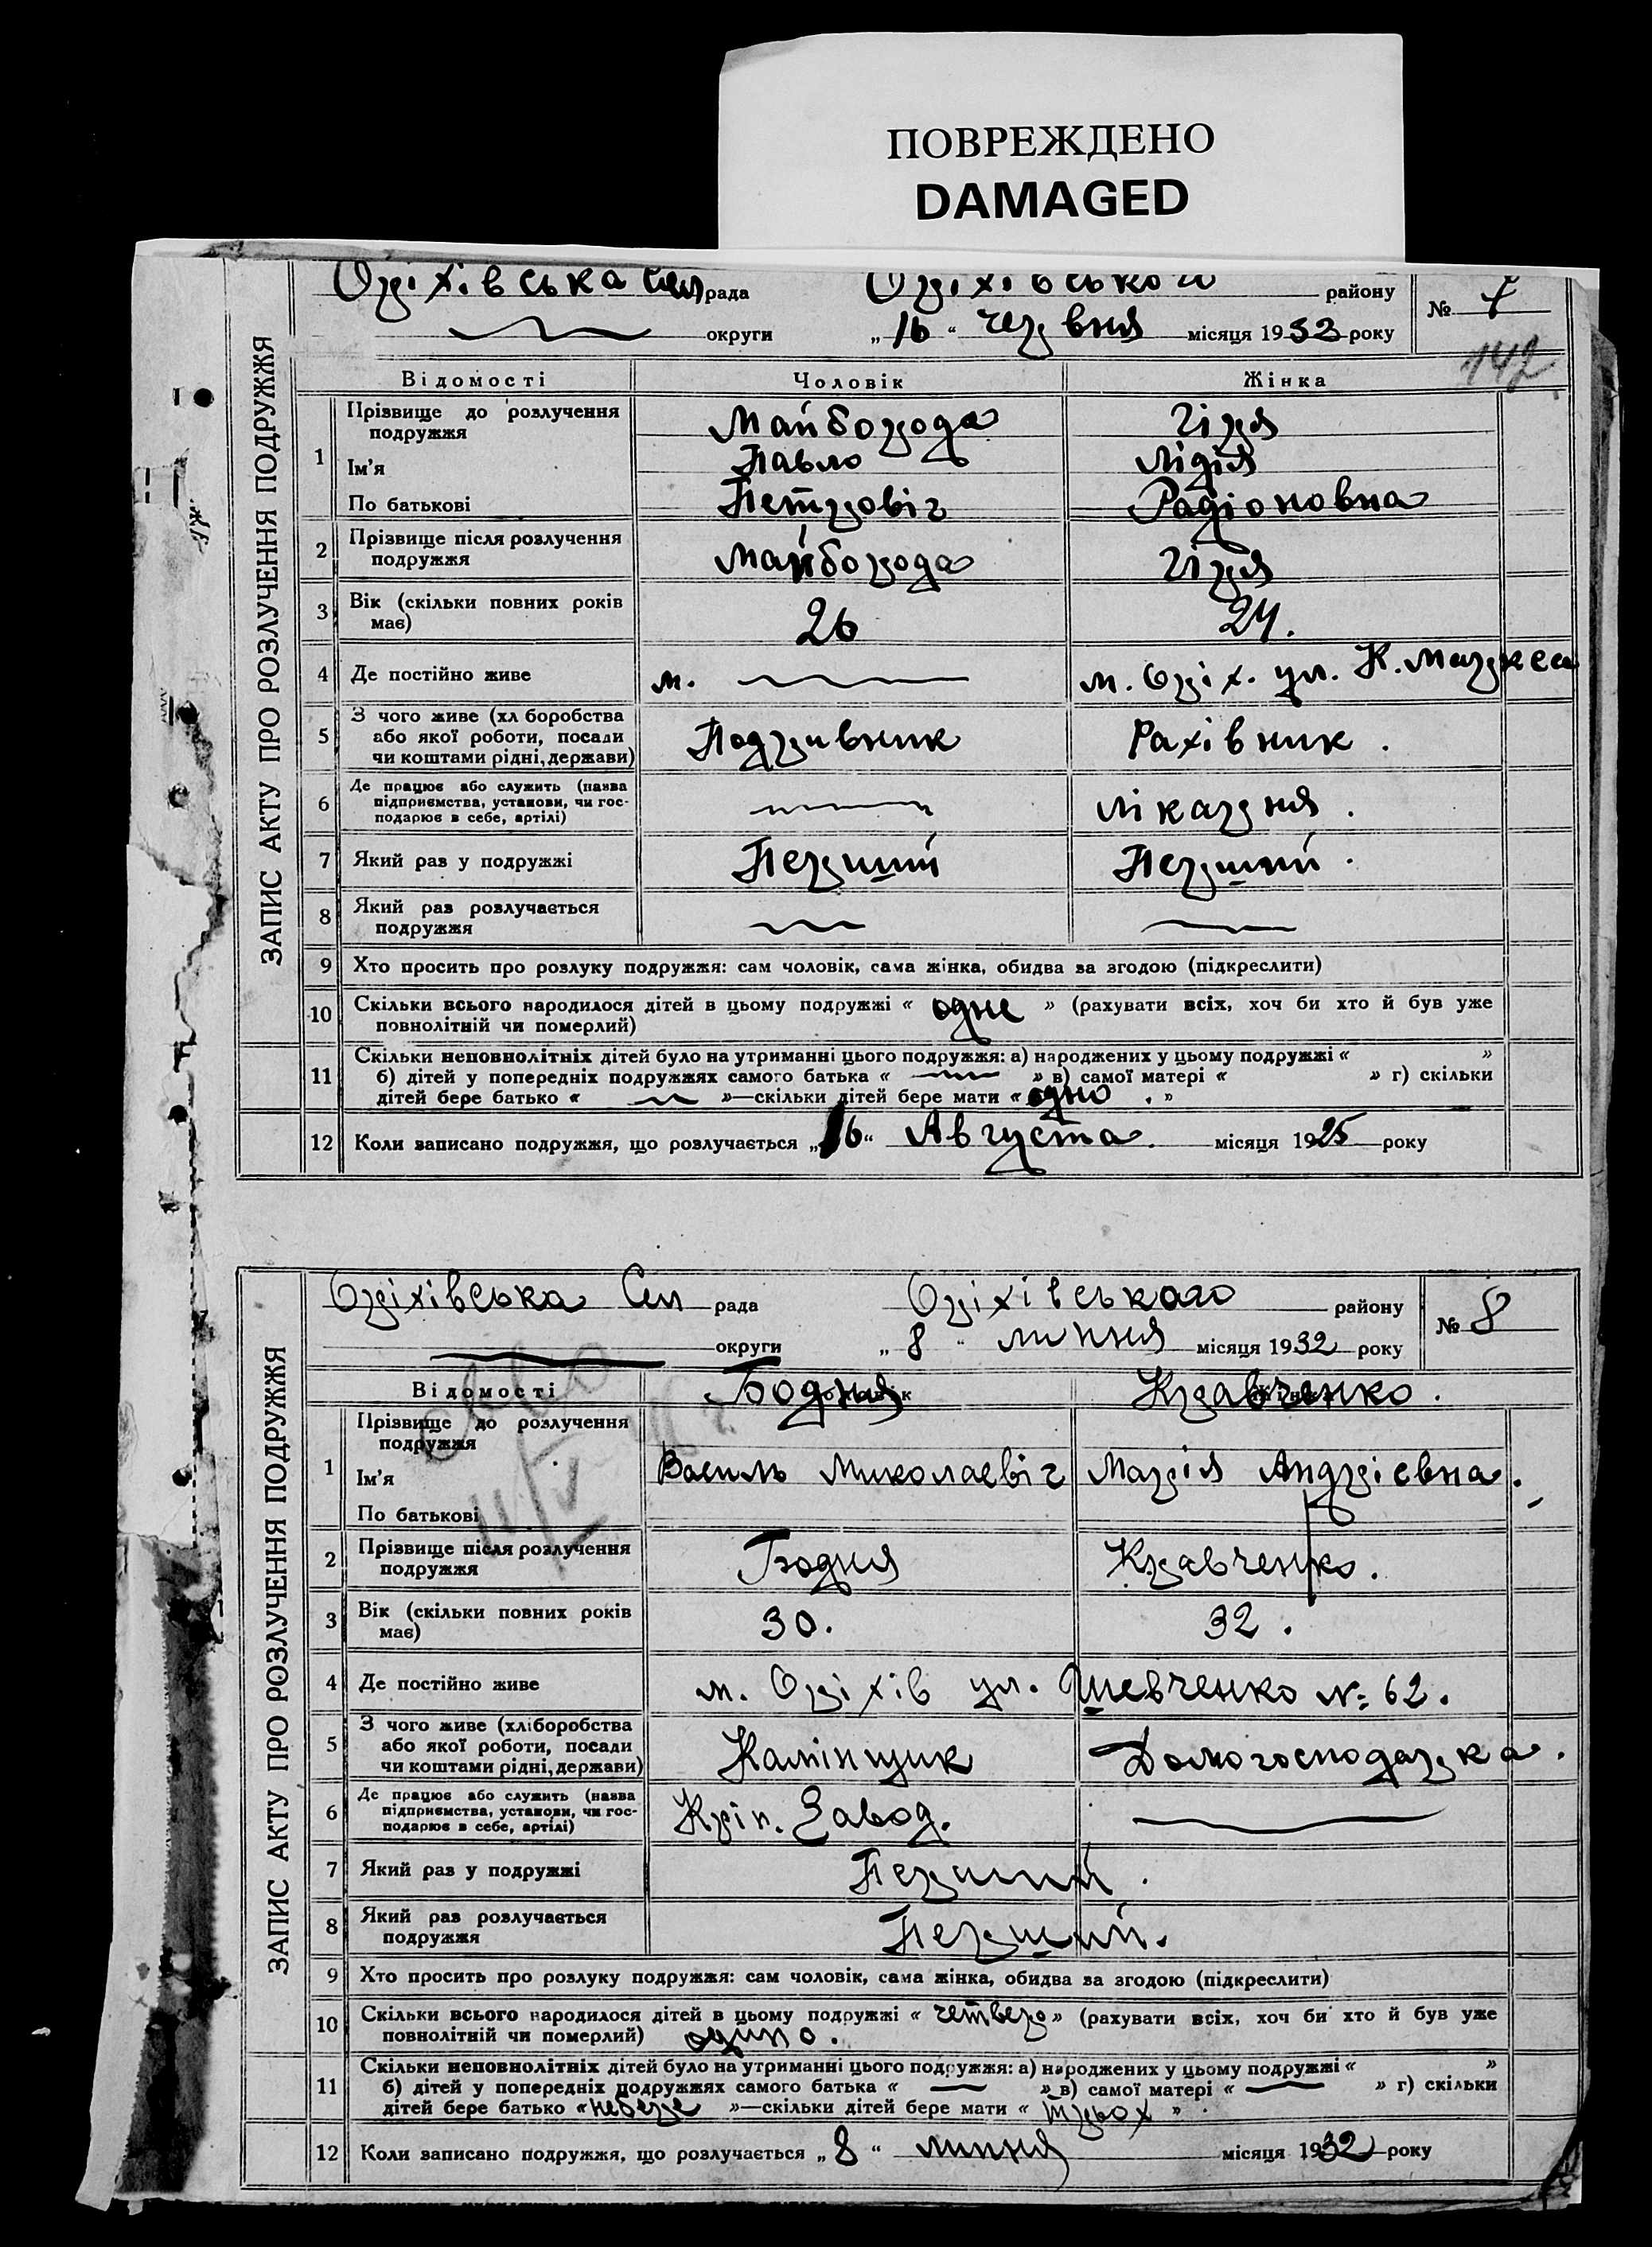 ПОВРЕЖДЕНО
DAMAGED
Оріхівська Сел рада Оріхівського району № 7
округи „16“ червня місяця 1932 року
142
ЗАПИС АКТУ ПРО РОЗЛУЧЕННЯ ПОДРУЖЖЯ
Відомості Чоловік Жінка
1 Прізвище до розлучення подружжя Майборода Гірря
Ім'я Павло Лідія
По батькові Петровіч Радіоновна
2 Прізвище після розлучення подружжя Майборода Гірря
3 Вік (скільки повних років має) 26 24.
4 Де постійно живе м. м. Оріх. ул. К. Маркса
5 З чого живе (хліборобства
або якої роботи, посади
чи коштами рідні, держави) Подривник Рахівник.
6 Де працює або служить (назва
підприємства, установи, чи гос-
подарює в себе, артілі) Лікарня.
7 Який раз у подружжі Перший Перший.
8 Який раз розлучається
подружжя
9 Хто просить про розлуку подружжя: сам чоловік, сама жінка, обидва за згодою (підкреслити)
10 Скільки всього народилося дітей в цьому подружжі « одне » (рахувати всіх, хоч би хто й був уже
повнолітній чи померлий)
11 Скільки неповнолітніх дітей було на утриманні цього подружжя: а) народжених у цьому подружжі « »
б) дітей у попередніх подружжях самого батька « » в) самої матері « » г) скільки
дітей бере батько « »—скільки дітей бере мати « одно . »
12 Коли записано подружжя, що розлучається „16“ Августа. місяця 1925 року
Оріхівська Сел рада Оріхівського району № 8
округи „8“ липня місяця 1932 року
ЗАПИС АКТУ ПРО РОЗЛУЧЕННЯ ПОДРУЖЖЯ
Відомості Чоловік Жінка
Бодня Кравченко.
1 Прізвище до розлучення
подружжя
Ім'я Василь Миколаєвіч Марія Андрієвна.
По батькові
2 Прізвище після розлучення
подружжя Бодня Кравченко.
3 Вік (скільки повних років
має) 30. 32.
4 Де постійно живе м. Оріхів ул. Шевченко № 62.
5 З чого живе (хліборобства
або якої роботи, посади
чи коштами рідні, держави) Камінщик Домогосподарка.
6 Де працює або служить (назва
підприємства, установи, чи гос-
подарює в себе, артілі) Кріп. Завод.
7 Який раз у подружжі Перший.
8 Який раз розлучається
подружжя Перший.
9 Хто просить про розлуку подружжя: сам чоловік, сама жінка, обидва за згодою (підкреслити)
10 Скільки всього народилося дітей в цьому подружжі « четверо » (рахувати всіх, хоч би хто й був уже
повнолітній чи померлий)
11 Скільки неповнолітніх дітей було на утриманні цього подружжя: а) народжених у цьому подружжі « »
б) дітей у попередніх подружжях самого батька « » в) самої матері « » г) скільки
дітей бере батько « небере »—скільки дітей бере мати « трьох »
12 Коли записано подружжя, що розлучається „8“ липня місяця 1932 року